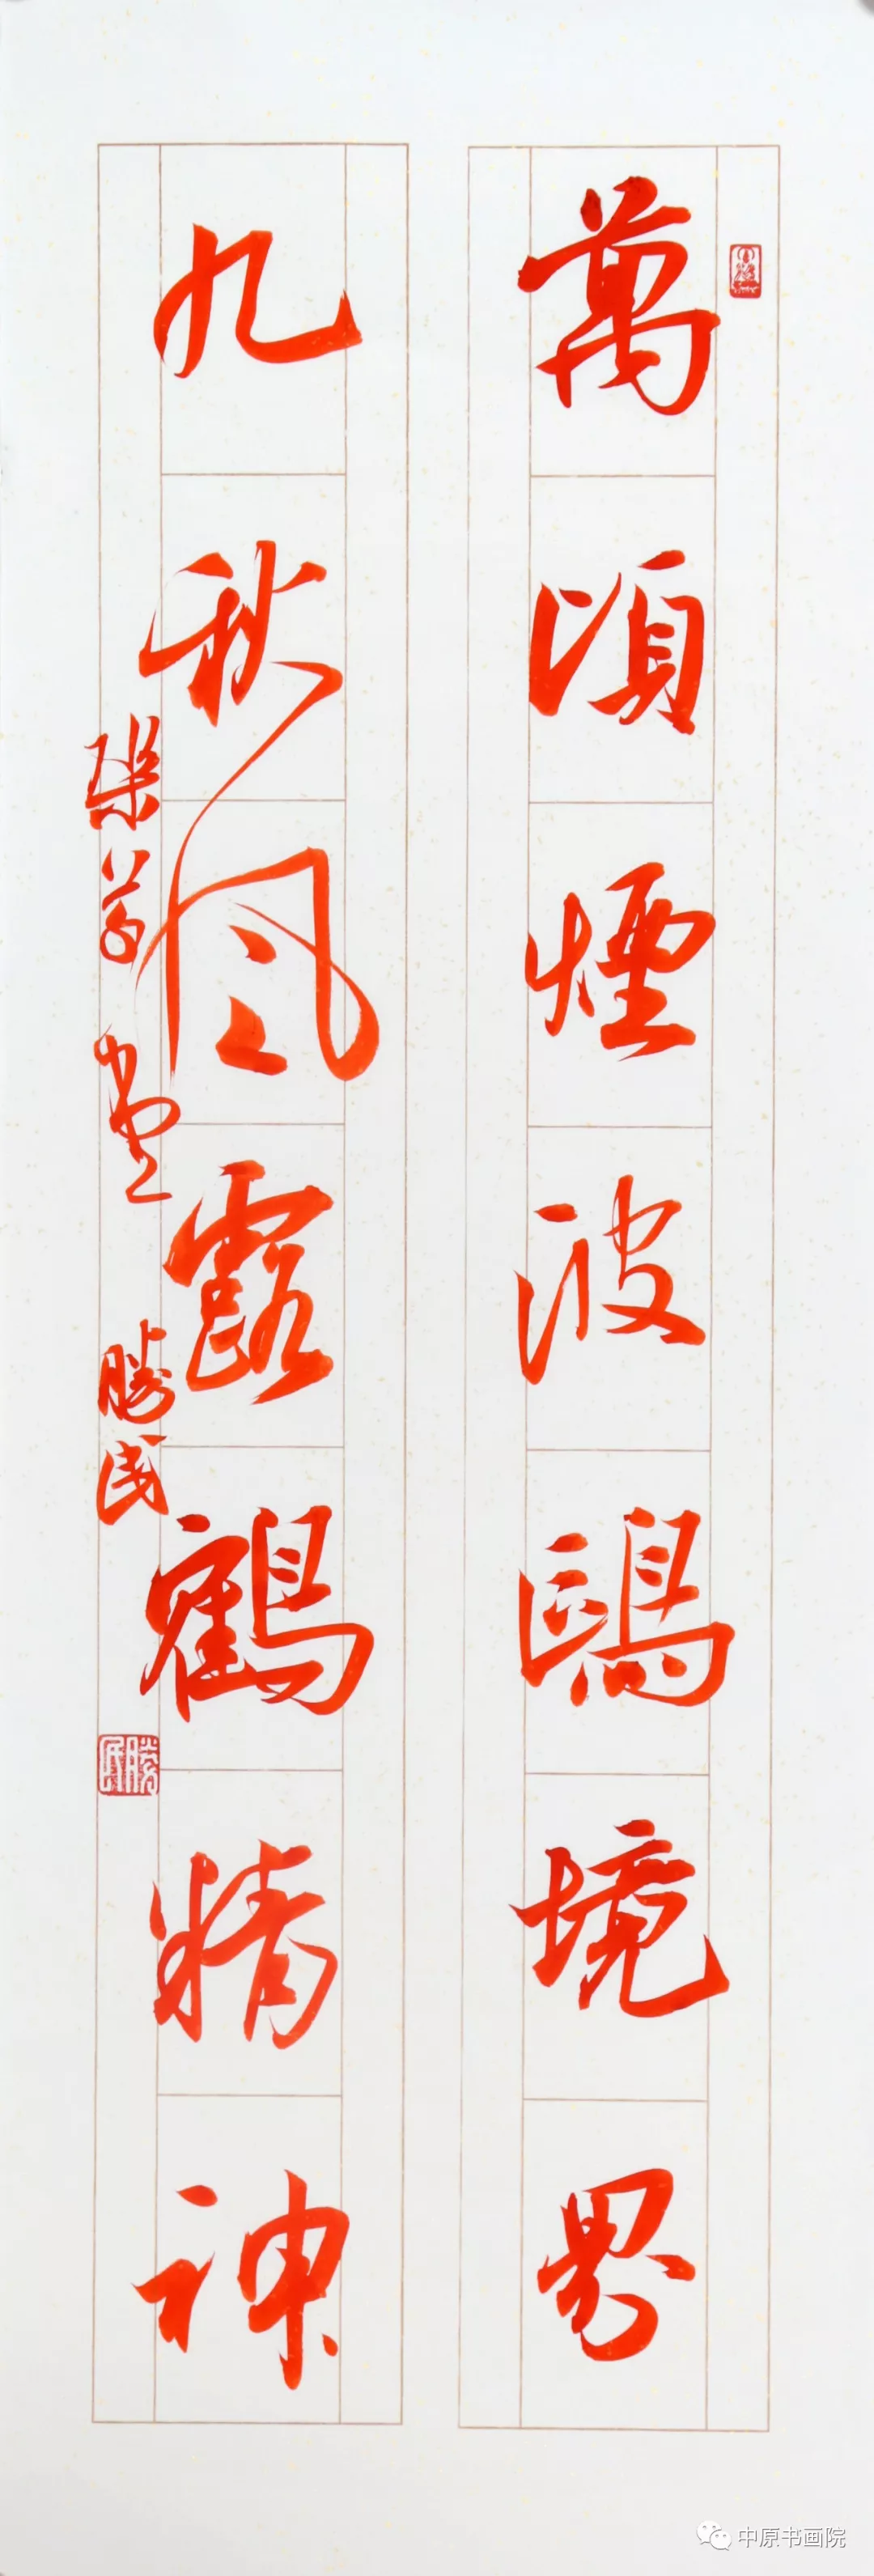 萬頃煙波鷗境界
九秋風露鶴精神
勝民
勝民
中原书画院